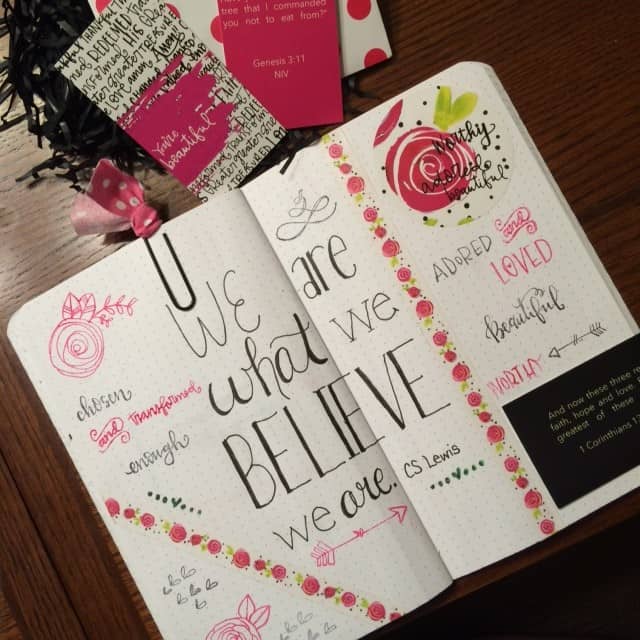 tree that I commanded
you not to eat from?"
Genesis 3:11
NIV
you're
beautiful
WE are
what we
BELIEVE
we are.
CS Lewis
chosen
and transformed
enough
worthy
adored
beautiful
ADORED and
LOVED
Beautiful
WORTHY
And now these three re
faith, hope and love
greatest of these
1 Corinthians 1